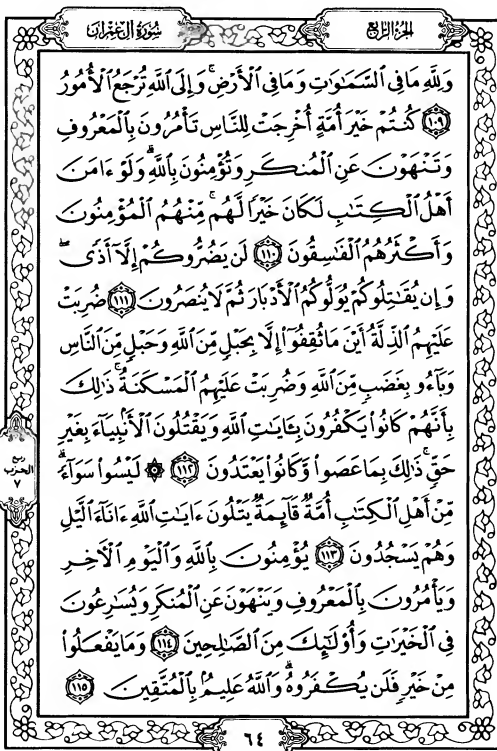 الجزء الرابع
سورة آل عمران
وَلِلَّهِ مَا فِي السَّمَاوَاتِ وَمَا فِي الْأَرْضِ ۚ وَإِلَى اللَّهِ تُرْجَعُ الْأُمُورُ
١٠٩ كُنتُمْ خَيْرَ أُمَّةٍ أُخْرِجَتْ لِلنَّاسِ تَأْمُرُونَ بِالْمَعْرُوفِ
وَتَنْهَوْنَ عَنِ الْمُنكَرِ وَتُؤْمِنُونَ بِاللَّهِ ۗ وَلَوْ ءَامَنَ
أَهْلُ الْكِتَابِ لَكَانَ خَيْرًا لَّهُم ۚ مِّنْهُمُ الْمُؤْمِنُونَ
وَأَكْثَرُهُمُ الْفَاسِقُونَ ١١٠ لَن يَضُرُّوكُمْ إِلَّا أَذًى ۖ
وَإِن يُقَاتِلُوكُمْ يُوَلُّوكُمُ الْأَدْبَارَ ثُمَّ لَا يُنصَرُونَ ١١١ ضُرِبَتْ
عَلَيْهِمُ الذِّلَّةُ أَيْنَ مَا ثُقِفُوا إِلَّا بِحَبْلٍ مِّنَ اللَّهِ وَحَبْلٍ مِّنَ النَّاسِ
وَبَاءُو بِغَضَبٍ مِّنَ اللَّهِ وَضُرِبَتْ عَلَيْهِمُ الْمَسْكَنَةُ ۚ ذَٰلِكَ
بِأَنَّهُمْ كَانُوا يَكْفُرُونَ بِـَٔايَاتِ اللَّهِ وَيَقْتُلُونَ الْأَنبِيَاءَ بِغَيْرِ
حَقٍّ ۚ ذَٰلِكَ بِمَا عَصَوا وَّكَانُوا يَعْتَدُونَ ١١٢ ۞ لَيْسُوا سَوَاءً ۗ
مِّنْ أَهْلِ الْكِتَابِ أُمَّةٌ قَائِمَةٌ يَتْلُونَ ءَايَاتِ اللَّهِ ءَانَاءَ الَّيْلِ
وَهُمْ يَسْجُدُونَ ١١٣ يُؤْمِنُونَ بِاللَّهِ وَالْيَوْمِ الْآخِرِ
وَيَأْمُرُونَ بِالْمَعْرُوفِ وَيَنْهَوْنَ عَنِ الْمُنكَرِ وَيُسَارِعُونَ
فِي الْخَيْرَاتِ وَأُولَٰئِكَ مِنَ الصَّالِحِينَ ١١٤ وَمَا يَفْعَلُوا
مِنْ خَيْرٍ فَلَن يُكْفَرُوهُ ۗ وَاللَّهُ عَلِيمٌ بِالْمُتَّقِينَ ١١٥
ربع
الحزب
٧
٦٤